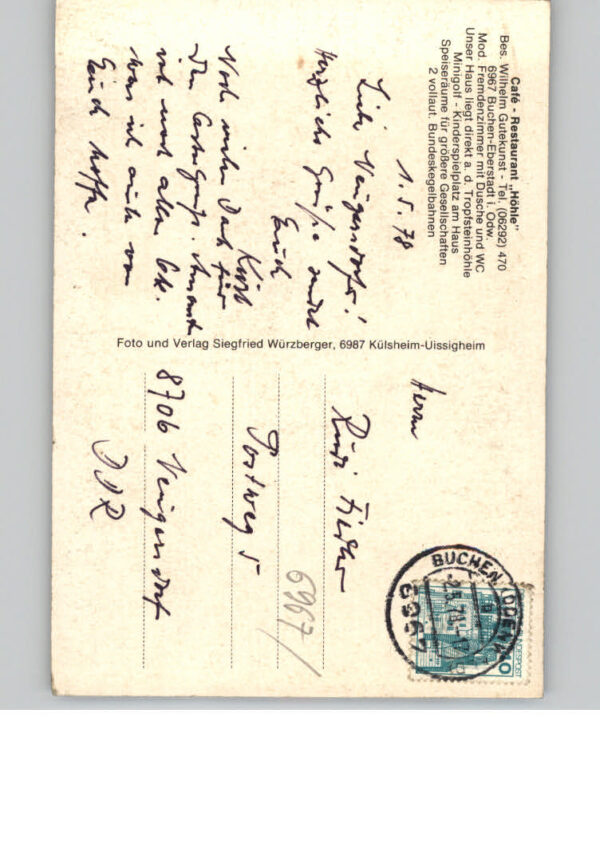 Café - Restaurant „Höhle"
Bes. Wilhelm Gutekunst - Tel. (06292) 470
6967 Buchen-Eberstadt i. Odw
Mod. Fremdenzimmer mit Dusche und WC
Unser Haus liegt direkt a. d. Tropfsteinhöhle
Minigolf - Kinderspielplatz am Haus
Speiseräume für größere Gesellschaften
2 vollaut. Bundeskegelbahnen
1.5.78
Liebe Neugersdorfer!
Herzliche Grüße sendet
Euch
Kurt
Noch vielen Dank für
den Ostergruß.
mit uns alles Ok.
was ich auch von
Euch hoffe.
Foto und Verlag Siegfried Würzberger, 6987 Külsheim-Uissigheim
Herrn
Rudi
Postweg 5
8706 Neugersdorf
DDR
6967/
BUCHEN (ODENW)
-2.5.78
6967
BUNDESPOST